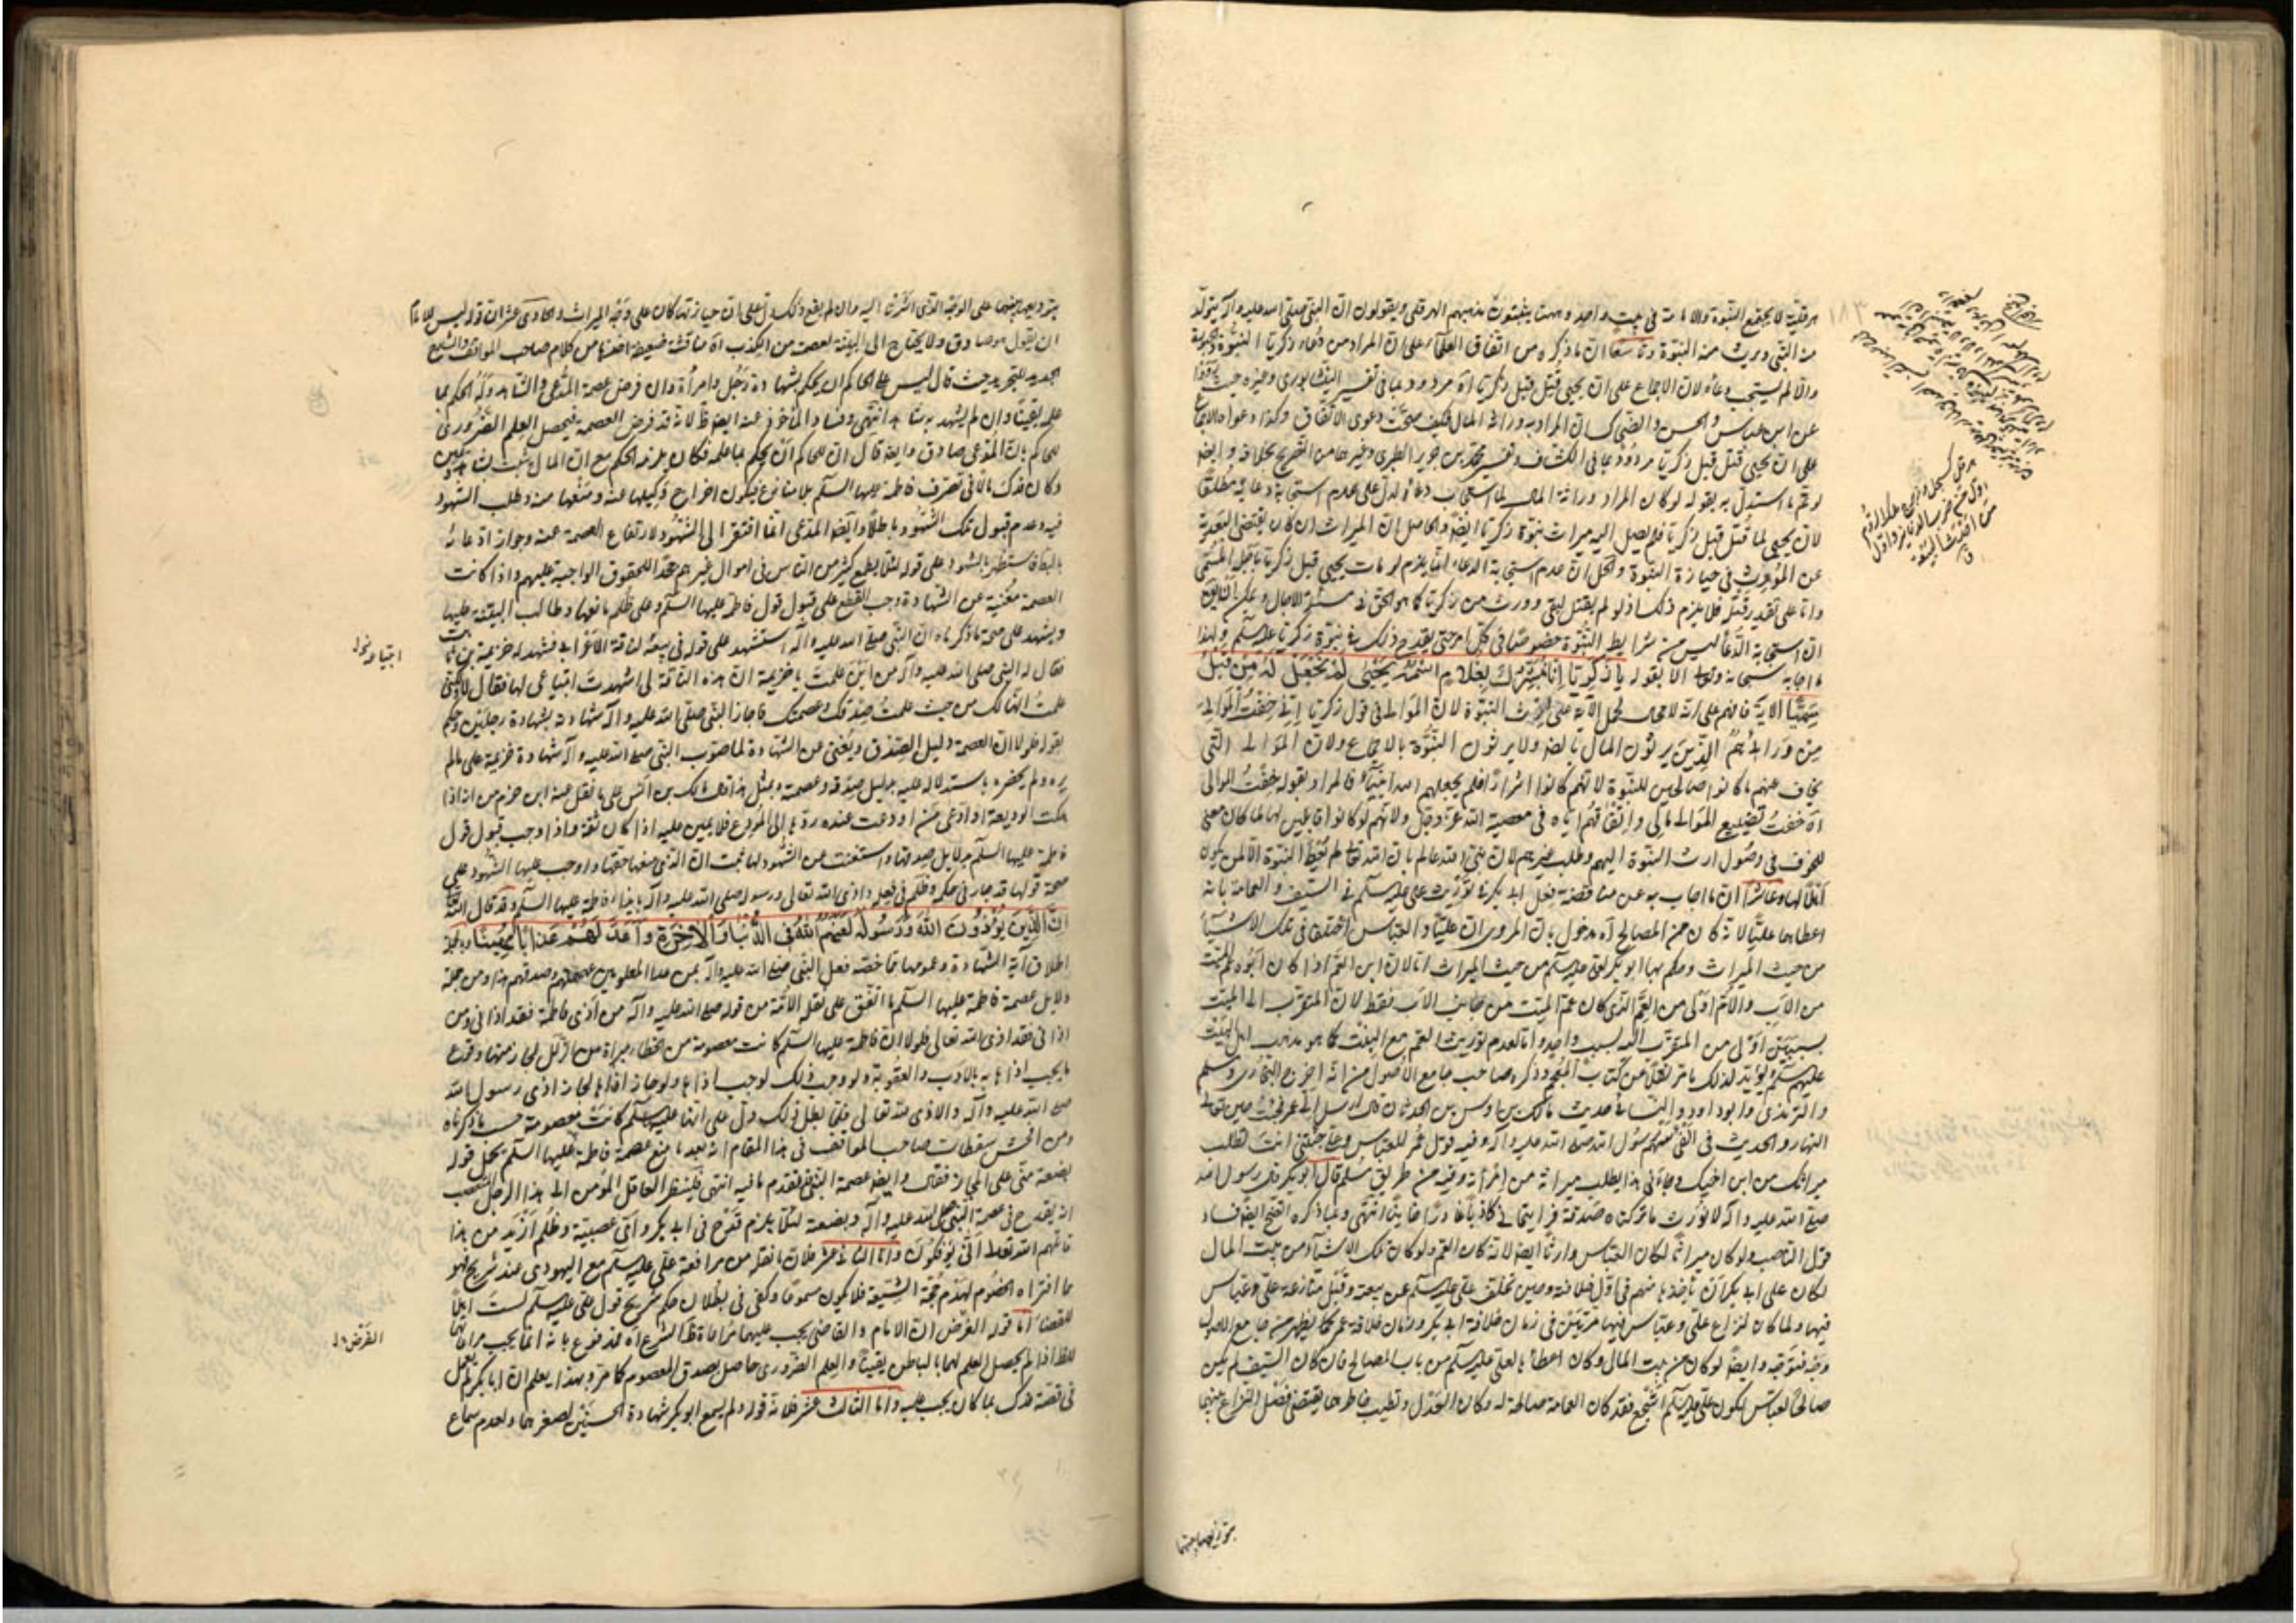 هرقلية لا يجتمع النبوة والامامة في بيت واحد وهب يثبتون مذهبهم الهرقلي ويقولون ان النبي صلى الله عليه وآله
من النبي ويرث منه النبوة وتاسعا ان ما ذكره من اتفاق العلماء على ان المراد من دعاء زكريا النبوة
والا لم يستجب دعاءه لان الاجماع على ان يحيى قتل قبل زكريا آه مردود بما في تفسير النيشابوري وغيره حيث
عن ابن عباس والحسن والضحاك ان المراد به وراثة المال فكيف صحت دعوى الاتفاق وكذا دعواه الاجماع
على ان يحيى قتل قبل زكريا مردود بما في الكشاف وتفسير محمد بن جرير الطبري وغيرهما من التصريح بخلافه وايضا
لو تم ما استدل به بقوله لو كان المراد وراثة المال لما استجاب دعاءه لدل على عدم استجابة دعائه مطلقا
لان يحيى لما قتل قبل زكريا فلم يصل اليه ميراث نبوة زكريا ايضا والحاصل ان الميراث ان كان يقتضي البعدية
عن المورث في حيازة النبوة والحال ان عدم استجابة الدعاء انما يلزم لو مات يحيى قبل زكريا باجله المسمى
واما على تقدير قتله فلا يلزم ذلك اذ لو لم يقتل لبقي وورث من زكريا كما هو الحق في مسئلة الآجال
ان استجابة الدعاء ليس من شرايط النبوة خصوصا في كل امر حتى يقدح ذلك في نبوة زكريا عليه السلم ولهذا
ما اجابه سبحانه وتعالى الا بقوله يا زكريا انا نبشرك بغلام اسمه يحيى لم نجعل له من قبل
سميا الآية فافهم على انه لا مجال لحمل الآية على ارث النبوة لان الموالي في قول زكريا اني خفت الموالي
من ورائي هم الذين يرثون المال بالضم ولا يرثون النبوة بالاجماع ولان الموالي التي
يخاف عنهم ما كانوا صالحين للنبوة لانهم كانوا اشرارا فلم يجعلهم الله انبياء فالمراد بقوله خفت الموالي
اه خفت تضييع الموالي مالي وانفاقهم اياه في معصية الله عز وجل ولانهم لو كانوا قابلين لها لما كان معنى
للخوف في وصول ارث النبوة اليهم وطلب غيرهم لان نبي الله عالم بان الله تعالى لم يعط النبوة الا لمن يكون
اهلا لها وعاشرا ان ما اجاب به عن مناقضة فعل ابي بكر في توريث علي عليه السلم في السيف والعمامة بانه
اعطاهما عليا لانه كان من المصالح آه مدخول بان المروي ان عليا والعباس اختلفا في تلك الاشياء
من حيث الميراث وحكم بها ابو بكر لعلي عليه السلم من حيث الميراث اما لان ابن العم اذا كان ابوه عم الميت
من الاب والام اولى من العم الذي كان عم الميت من جانب الاب فقط لان المتقرب الى الميت
بسببين اولى من المتقرب اليه بسبب واحد واما لعدم توريث العم مع البنت كما هو مذهب اهل البيت
عليهم السلم ويؤيد لذلك ما مر نقلا عن كتاب المعجم وذكره صاحب جامع الاصول من انه اخرج البخاري ومسلم
والترمذي وابو داود والنسائي حديث مالك بن اوس بن الحدثان قال ارسل الي عمر فجئته حين تعالى
النهار والحديث في الفيء سهم رسول الله صلى الله عليه وآله وفيه قول عمر للعباس وعلي جئتني انت تطلب
ميراثك من ابن اخيك وجاءني هذا يطلب ميراثه من امرأته وفيه من طريق مسلم قال ابو بكر قال رسول الله
صلى الله عليه وآله لا نورث ما تركناه صدقة فرايتماني كاذبا غادرا خاينا انتهى وبما ذكره اتضح ايضا فساد
قول الناصب ولو كان ميراثا لكان العباس وارثا ايضا لانه كان العم ولو كان تلك الاشياء من بيت المال
لكان على ابي بكر ان يأخذها منهم في اول خلافته وحين تخلف علي عليه السلم عن بيعته وقبل منازعة علي وعباس
فيها ولما كان لنزاع علي وعباس فيها مرتين في زمان خلافة ابي بكر وزمان خلافة عمر كما يظهر من جامع الاصول
وجه فتوجه وايضا لو كان من بيت المال وكان اعطاها لعلي عليه السلم من باب المصالح فان كان السيف لم يكن
صالحا لعباس لكون علي عليه السلم اشجع فقد كان العمامة صالحة له وكان العدل وتطييب خاطرهما يقتضي فصل النزاع بينهما
١٨٣
بتوزيعهما بينهما
بتوزيعهما بينهما على الوجه الذي اشرنا اليه وان لم يقع ذلك دل على ان حيازتهما كان على وجه الميراث والحادي عشر ان قوله ليس للامام
ان يقول هو صادق ولا يحتاج الى البينة لعصمته من الكذب آه مناقشة ضعيفة اخذها من كلام صاحب المواقف والشارح
الجديد للتجريد حيث قال ليس على الحاكم ان يحكم بشهادة رجل وامرأة وان فرض عصمة المدعي والشاهد وله الحكم بما
علمه يقينا وان لم يشهد به شاهد انتهى وفساد المأخوذ عنه ايضا ظ لانه قد فرض العصمة فيحصل العلم الضروري
للحاكم بان المدعي صادق وايضا قال ان للحاكم ان يحكم بما علمه فكان يلزمه الحكم مع ان المال يثبت بشاهد ويمين
وكان فدك مالا في تصرف فاطمة عليها السلم بلا منازع فيكون اخراج وكيلها عنه ومنعها منه وطلب الشهود
فيه وعدم قبول تلك الشهود باطلا وايضا المدعي انما افتقر الى الشهود لارتفاع العصمة عنه وجواز ادعائه
بالباطل فاستظهر بالشهود على قوله لئلا يطمع كثير من الناس في اموال غيرهم وجحد الحقوق الواجبة عليهم واذا كانت
العصمة مغنية عن الشهادة وجب القطع على قبول قول فاطمة عليها السلم وعلى ظلم مانعها وطالب البينة عليها
ويشهد على صحة ما ذكرناه ان النبي صلى الله عليه وآله استشهد على قوله في بيعه لناقة الاعرابي فشهد له خزيمة بن ثابت
فقال له النبي صلى الله عليه وآله من اين علمت يا خزيمة ان هذه الناقة لي اشهدت ابتياعي لها فقال لا ولكني
علمت انها لك من حيث علمت صدقك وعصمتك فاجاز النبي صلى الله عليه وآله شهادته بشهادة رجلين وحكم
بقوله فلولا ان العصمة دليل الصدق ويغني عن الشهادة لما صوب النبي صلى الله عليه وآله شهادة خزيمة على ما لم
يره ولم يحضره باستدلاله عليه بدليل صدقه وعصمته وبمثل هذا قال مالك بن انس على ما نقل عنه ابن حزم من انه اذا
هلكت الوديعة او ادعى من اودعت عنده ردها الى المودع فلا يمين عليه اذا كان ثقة واذا وجب قبول قول
فاطمة عليها السلم بدلايل صدقها واستغنت عن الشهود لها ثبت ان الذي منعها حقها واوجب عليها الشهود على
صحة قولها قد جار في حكمه وظلم في فعله واذى الله تعالى ورسوله صلى الله عليه وآله بايذاء فاطمة عليها السلم وقد قال الله
ان الذين يؤذون الله ورسوله لعنهم الله في الدنيا والاخرة واعد لهم عذابا مهينا وبالجملة
اطلاق آية الشهادة وعمومها مما خصه فعل النبي صلى الله عليه وآله بمن عدا المعلومين عصمتهم وصدقهم هذا ومن جملة
دلايل عصمة فاطمة عليها السلم ما اتفق على نقله الائمة من قوله صلى الله عليه وآله من اذى فاطمة فقد اذاني ومن
اذاني فقد اذى الله تعالى فلولا ان فاطمة عليها السلم كانت معصومة من الخطاء مبراة من الزلل لجاز منها وقوع
ما يجب اذاها به بالادب والعقوبة ولو وجب ذلك لوجب اذاها ولو جاز اذاها لجاز اذى رسول الله
صلى الله عليه وآله والاذى لله تعالى فلما بطل ذلك دل على انها عليها السلم كانت معصومة حسب ما ذكرناه
ومن افحش سقطات صاحب المواقف في هذا المقام انه بعد ما منع عصمة فاطمة عليها السلم بحمل قوله
بضعة مني على المجاز فقال وايضا عصمة النبي قد تقدم ما فيه انتهى فلينظر العاقل المؤمن الى هذا الرجل المتعصب
انه يقدح في عصمة النبي صلى الله عليه وآله وبضعته لئلا يلزم قدح في ابي بكر واي عصبية وظلم ازيد من هذا
قاتلهم الله تعالى انى يؤفكون واما الثاني عشر فلان ما نقله من مرافعة علي عليه السلم مع اليهودي عند شريح فهو
مما افتراه الخصوم لهدم حجة الشيعة فلا يكون مسموعا وكفى في بطلان حكم شريح قول علي عليه السلم لست اهلا
للقضاء اما قوله الغرض ان الامام والقاضي يجب عليهما مراعاة ظاهر الشرع آه فمدفوع بانه انما يجب مراعاتهما
للظ اذا لم يحصل العلم لهما بالباطن يقينا والعلم الضروري حاصل بصدق المعصوم كما مر وبهذا يعلم ان ابا بكر لم يعمل
في قصة فدك بما كان يجب عليه واما الثالث عشر فلان قوله ولم يسمع ابو بكر شهادة الحسنين لصغرهما ولعدم سماع